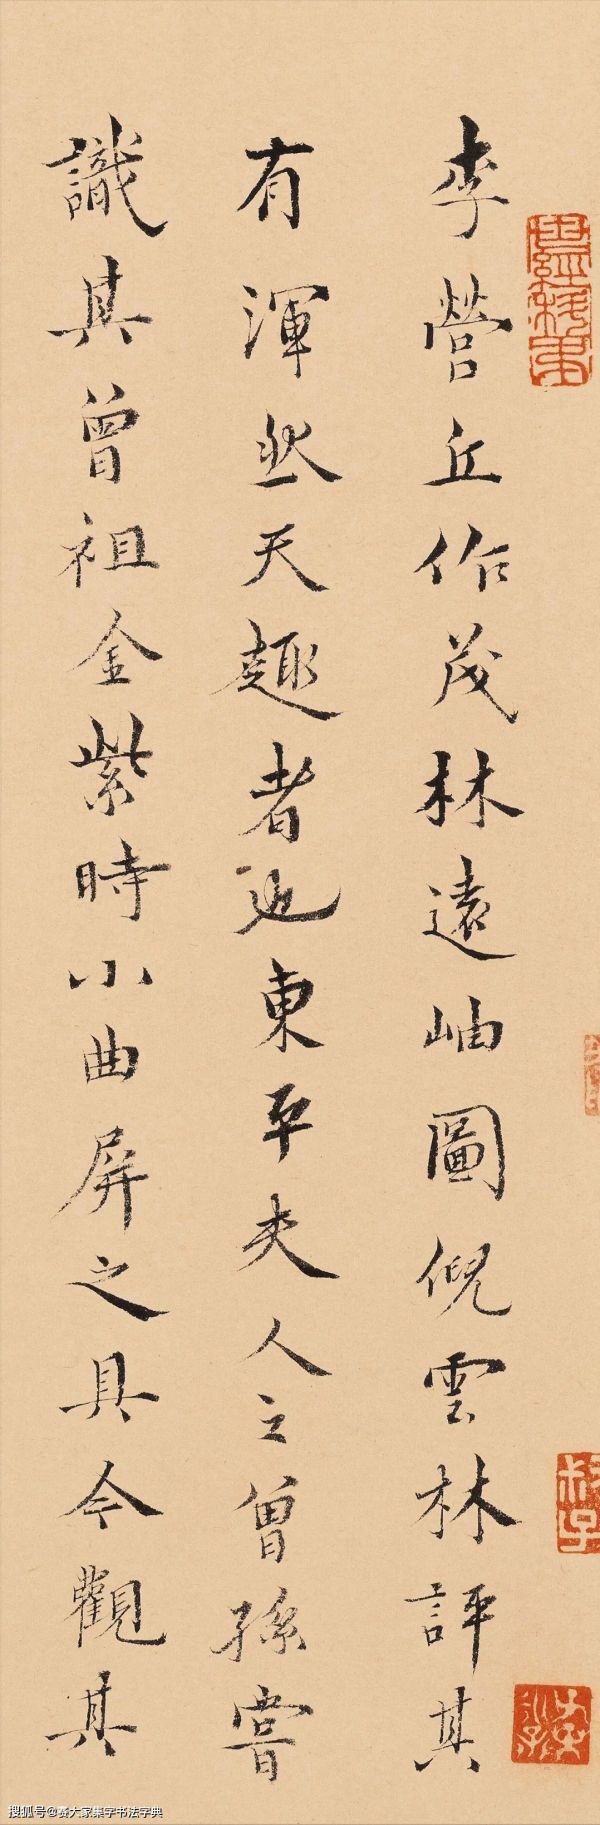 李營丘作茂林遠岫圖倪雲林評其
有渾然天趣者也東平夫人之曾孫嘗
識其曾祖金紫時小曲屏之具今觀其
搜狐号@赛大家集字书法字典